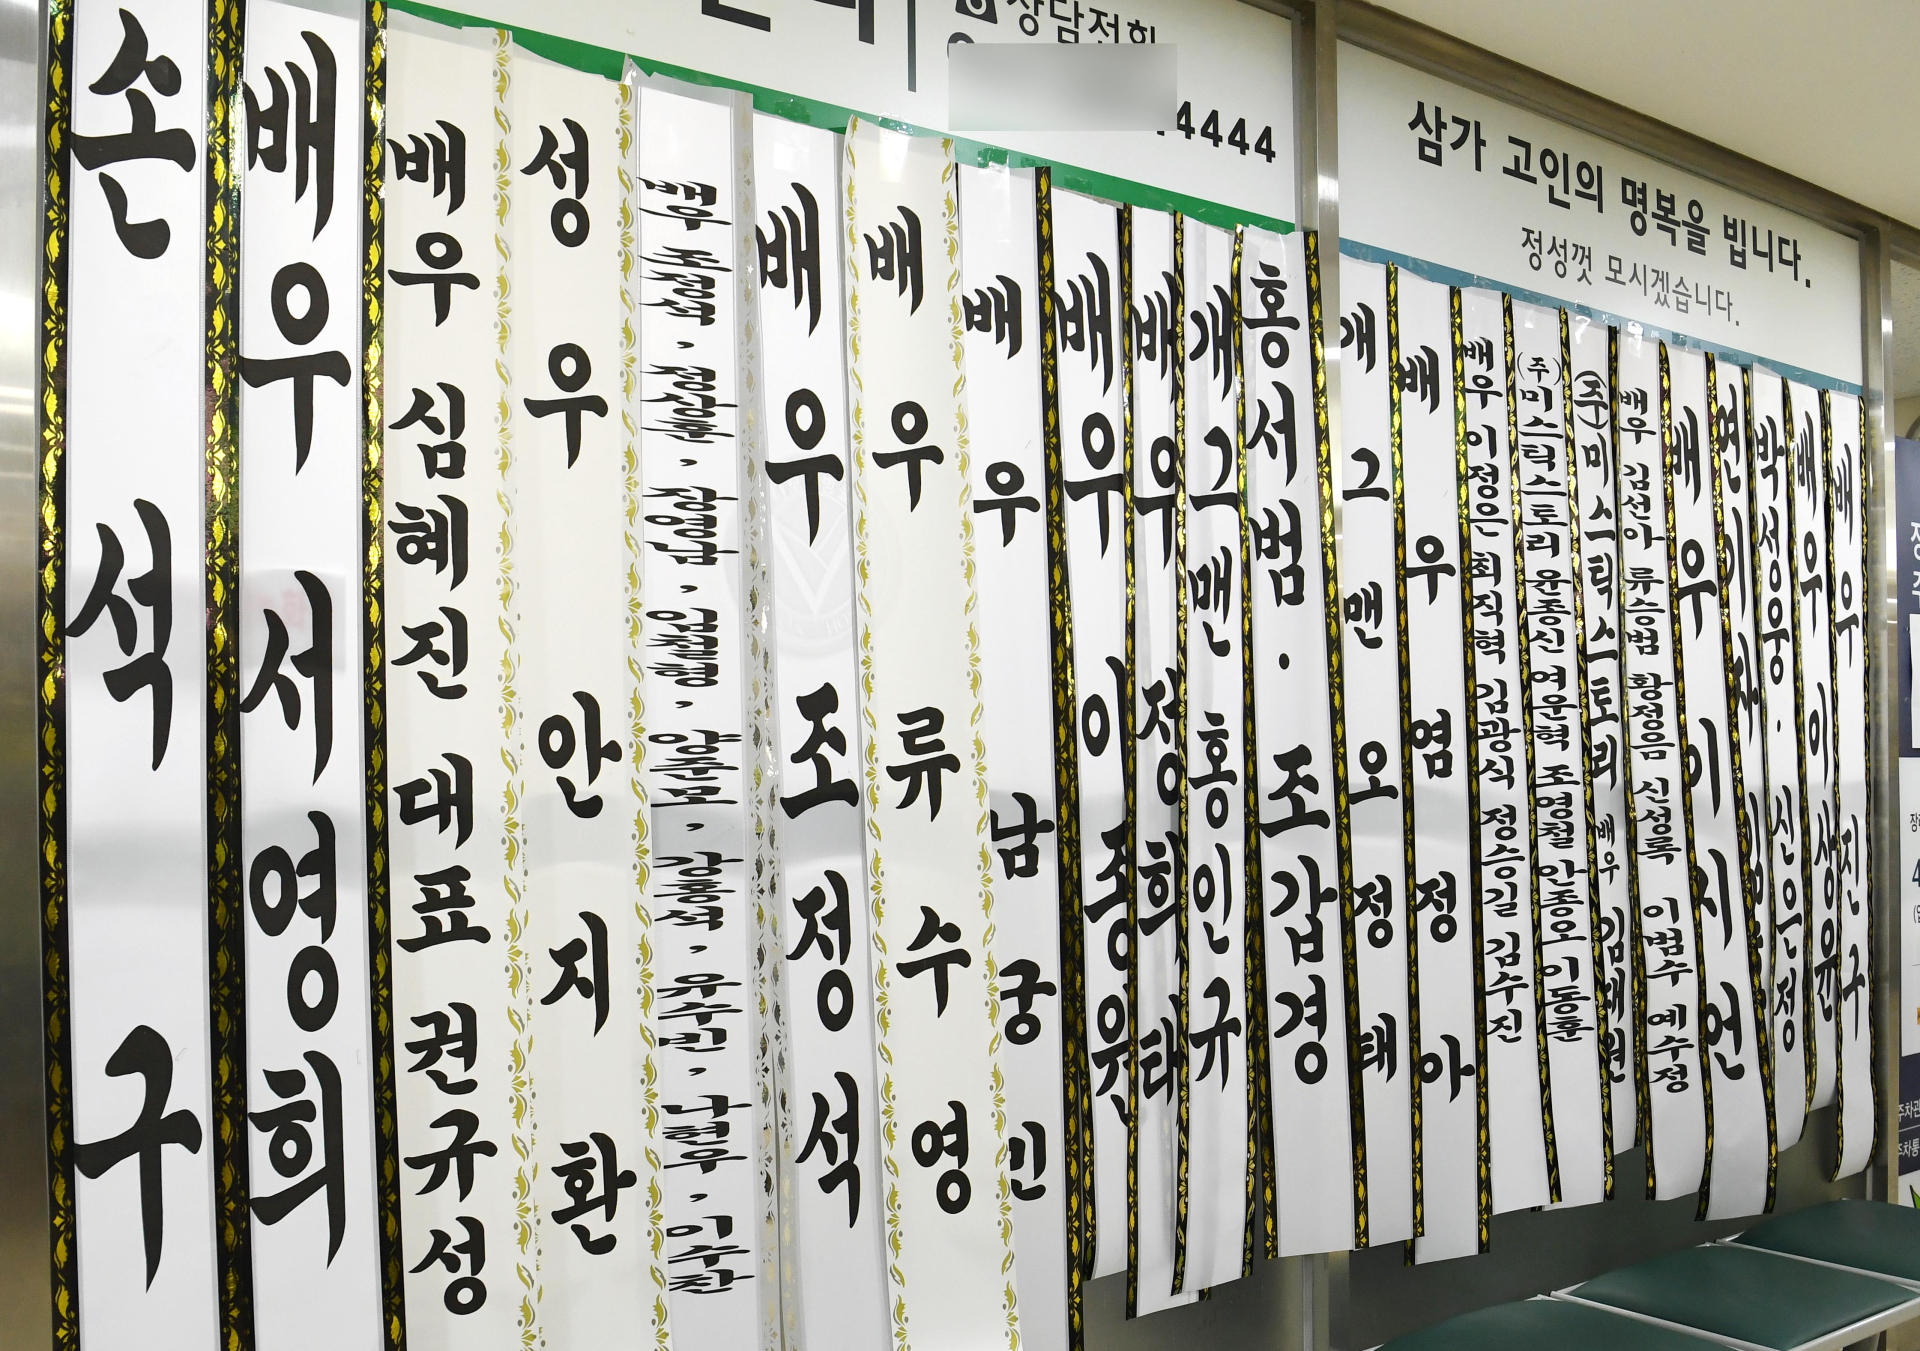 상담전화
4444
삼가 고인의 명복을 빕니다.
정성껏 모시겠습니다.
손석구
배우 서영희
배우 심혜진 대표 권규성
성우 안지환
배우 조정석, 정성훈, 장영남, 임철형, 양준모, 강홍석, 유수빈, 나현우, 이수찬
배우 조정석
배우 류수영
배우 남궁민
배우 이종원
배우 정희태
개그맨 홍인규
홍서범·조갑경
개그맨 오정태
배우 염정아
배우 이정은 최직혁 김광식 정승길 김수진
(주)미스틱스토리 윤종신 여운혁 조영철 안종오 이동훈
(주)미스틱스토리 배우 김재원
배우 김선아 류승범 황정음 신성록 이범수 예수정
배우 이지언
연기자
박성웅·신은정
배우 이상윤
배우 진구